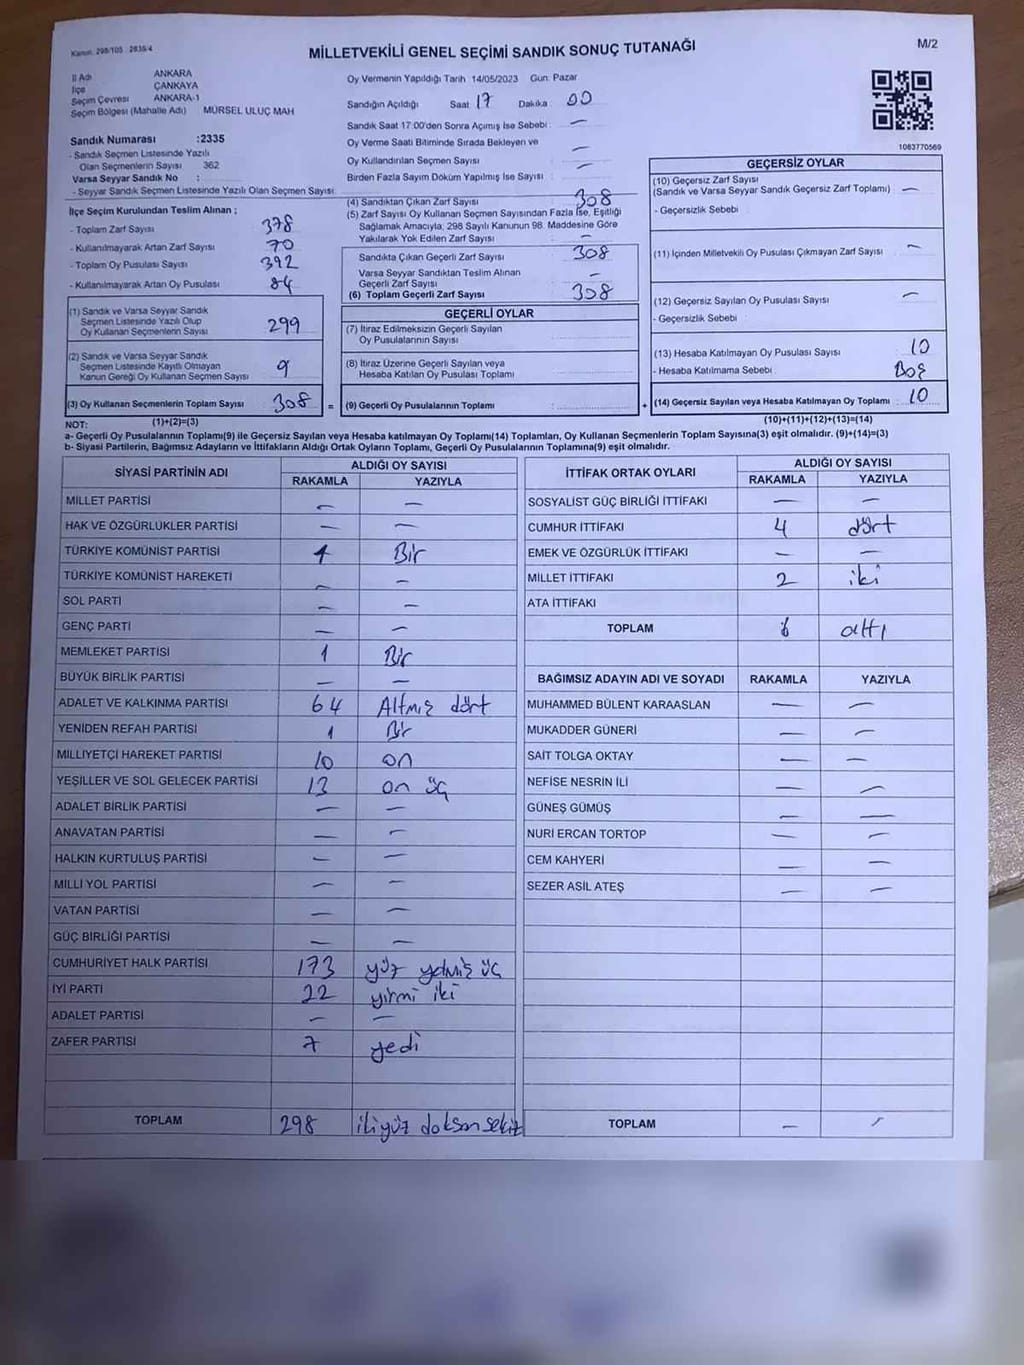 Kanun: 298/105 2839/4
MİLLETVEKİLİ GENEL SEÇİMİ SANDIK SONUÇ TUTANAĞI
M/2
İl Adı ANKARA
İlçe ÇANKAYA
Seçim Çevresi ANKARA-1
Seçim Bölgesi (Mahalle Adı) MÜRSEL ULUÇ MAH
Oy Vermenin Yapıldığı Tarih 14/05/2023 Gün: Pazar
Sandığın Açıldığı Saat 17 Dakika : 00
Sandık Saat 17:00'den Sonra Açımış İse Sebebi : —
Oy Verme Saati Bitiminde Sırada Bekleyen ve
Oy Kullandırılan Seçmen Sayısı —
Birden Fazla Sayım Döküm Yapılmış İse Sayısı : —
1083770569
Sandık Numarası :2335
- Sandık Seçmen Listesinde Yazılı
Olan Seçmenlerin Sayısı 362
Varsa Seyyar Sandık No :
- Seyyar Sandık Seçmen Listesinde Yazılı Olan Seçmen Sayısı:
İlçe Seçim Kurulundan Teslim Alınan ;
- Toplam Zarf Sayısı 378
- Kullanılmayarak Artan Zarf Sayısı 70
- Toplam Oy Pusulası Sayısı 392
- Kullanılmayarak Artan Oy Pusulası 84
(1) Sandık ve Varsa Seyyar Sandık
Seçmen Listesinde Yazılı Olup
Oy Kullanan Seçmenlerin Sayısı 299
(2) Sandık ve Varsa Seyyar Sandık
Seçmen Listesinde Kayıtlı Olmayan
Kanun Gereği Oy Kullanan Seçmen Sayısı 9
(3) Oy Kullanan Seçmenlerin Toplam Sayısı 308 =
(1)+(2)=(3)
(4) Sandıktan Çıkan Zarf Sayısı 308
(5) Zarf Sayısı Oy Kullanan Seçmen Sayısından Fazla İse, Eşitliği
Sağlamak Amacıyla; 298 Sayılı Kanunun 98. Maddesine Göre
Yakılarak Yok Edilen Zarf Sayısı —
Sandıkta Çıkan Geçerli Zarf Sayısı 308
Varsa Seyyar Sandıktan Teslim Alınan
Geçerli Zarf Sayısı —
(6) Toplam Geçerli Zarf Sayısı 308
GEÇERLİ OYLAR
(7) İtiraz Edilmeksizin Geçerli Sayılan
Oy Pusulalarının Sayısı :
(8) İtiraz Üzerine Geçerli Sayılan veya
Hesaba Katılan Oy Pusulası Toplamı :
(9) Geçerli Oy Pusulalarının Toplamı : +
GEÇERSİZ OYLAR
(10) Geçersiz Zarf Sayısı
(Sandık ve Varsa Seyyar Sandık Geçersiz Zarf Toplamı) —
- Geçersizlik Sebebi
(11) İçinden Milletvekili Oy Pusulası Çıkmayan Zarf Sayısı —
(12) Geçersiz Sayılan Oy Pusulası Sayısı —
- Geçersizlik Sebebi
(13) Hesaba Katılmayan Oy Pusulası Sayısı 10
- Hesaba Katılmama Sebebi Boş
(14) Geçersiz Sayılan veya Hesaba Katılmayan Oy Toplamı : 10
(10)+(11)+(12)+(13)=(14)
NOT:
a- Geçerli Oy Pusulalarının Toplamı(9) ile Geçersiz Sayılan veya Hesaba katılmayan Oy Toplamı(14) Toplamları, Oy Kullanan Seçmenlerin Toplam Sayısına(3) eşit olmalıdır. (9)+(14)=(3)
b- Siyasi Partilerin, Bağımsız Adayların ve İttifakların Aldığı Ortak Oyların Toplamı, Geçerli Oy Pusulalarının Toplamına(9) eşit olmalıdır.
SİYASİ PARTİNİN ADI ALDIĞI OY SAYISI
RAKAMLA YAZIYLA
MİLLET PARTİSİ — —
HAK VE ÖZGÜRLÜKLER PARTİSİ — —
TÜRKİYE KOMÜNİST PARTİSİ 1 Bir
TÜRKİYE KOMÜNİST HAREKETİ — —
SOL PARTİ — —
GENÇ PARTİ — —
MEMLEKET PARTİSİ 1 Bir
BÜYÜK BİRLİK PARTİSİ — —
ADALET VE KALKINMA PARTİSİ 64 Altmış dört
YENİDEN REFAH PARTİSİ 1 Bir
MİLLİYETÇİ HAREKET PARTİSİ 10 on
YEŞİLLER VE SOL GELECEK PARTİSİ 13 on üç
ADALET BİRLİK PARTİSİ — —
ANAVATAN PARTİSİ — —
HALKIN KURTULUŞ PARTİSİ — —
MİLLİ YOL PARTİSİ — —
VATAN PARTİSİ — —
GÜÇ BİRLİĞİ PARTİSİ — —
CUMHURİYET HALK PARTİSİ 173 yüz yetmiş üç
İYİ PARTİ 22 yirmi iki
ADALET PARTİSİ — —
ZAFER PARTİSİ 7 yedi
TOPLAM 298 ikiyüz doksan sekiz
İTTİFAK ORTAK OYLARI ALDIĞI OY SAYISI
RAKAMLA YAZIYLA
SOSYALİST GÜÇ BİRLİĞİ İTTİFAKI — —
CUMHUR İTTİFAKI 4 dört
EMEK VE ÖZGÜRLÜK İTTİFAKI — —
MİLLET İTTİFAKI 2 iki
ATA İTTİFAKI
TOPLAM 6 altı
BAĞIMSIZ ADAYIN ADI VE SOYADI RAKAMLA YAZIYLA
MUHAMMED BÜLENT KARAASLAN — —
MUKADDER GÜNERİ — —
SAİT TOLGA OKTAY — —
NEFİSE NESRİN İLİ — —
GÜNEŞ GÜMÜŞ — —
NURİ ERCAN TORTOP — —
CEM KAHYERİ — —
SEZER ASİL ATEŞ — —
TOPLAM — —